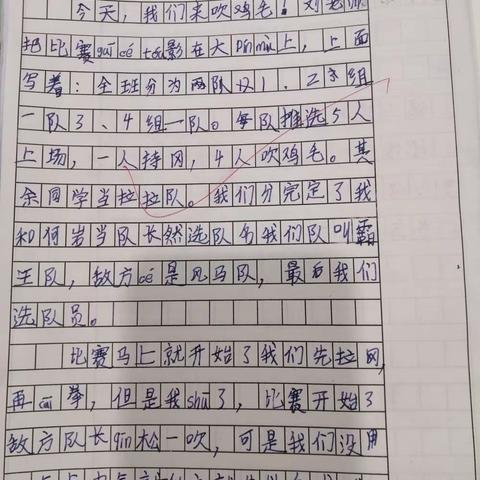 今天，我们来吹鸡毛！刘老师
把比赛guī cé tóu影在大píng mù上，上面
写着：全班分为两队以1、2为组
一队3、4组一队。每队推选5人
上场，一人持网，4人吹鸡毛。其
余同学当拉拉队。我们分完定了我
和何岩当队长然选队名我们队叫霸
王队，敌方cé是风马队，最后我们
选队员。
比赛马上就开始了我们先拉网，
再cāi拳，但是我shū了，比赛开始了
敌方队长qīn松一吹，可是我们没用